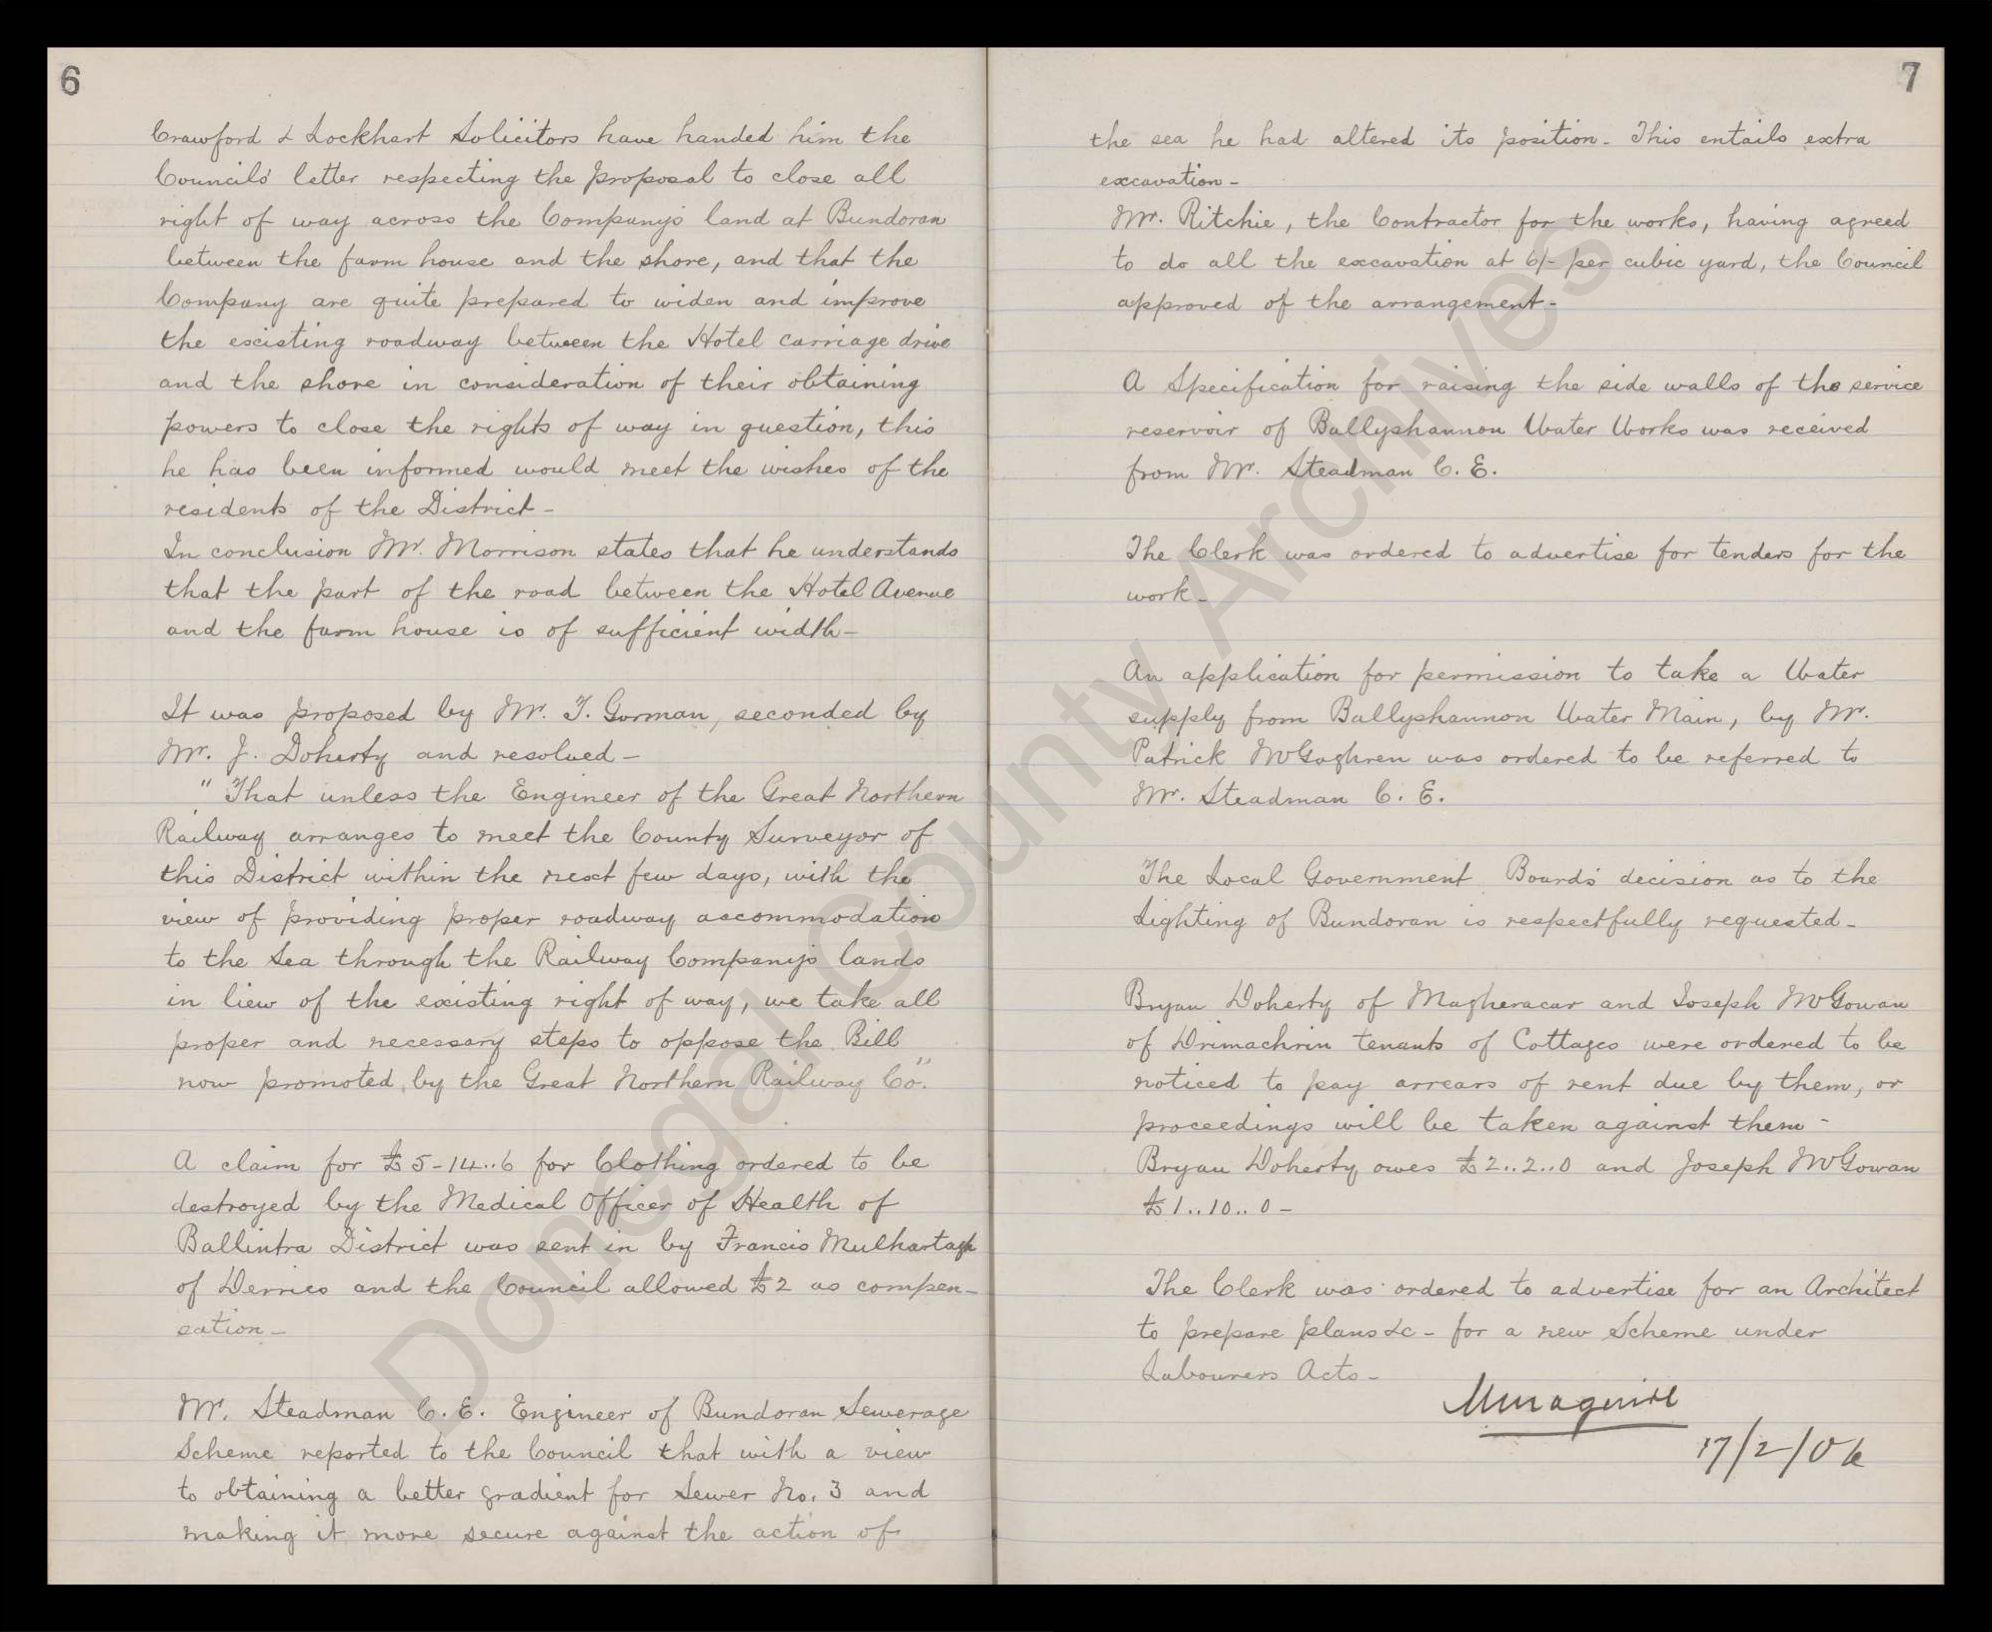 6
Crawford & Lockhart Solicitors have handed him the
Councils' letter respecting the proposal to close all
right of way across the Company's land at Bundoran
between the farm house and the shore, and that the
Company are quite prepared to widen and improve
the existing roadway between the Hotel carriage drive
and the shore in consideration of their obtaining
powers to close the rights of way in question, this
he has been informed would meet the wishes of the
residents of the District -
In conclusion Mr. Morrison states that he understands
that the part of the road between the Hotel Avenue
and the farm house is of sufficient width -
It was proposed by Mr. T. Gorman, seconded by
Mr. J. Doherty and resolved -
"That unless the Engineer of the Great Northern
Railway arranges to meet the County Surveyor of
this District within the next few days, with the
view of providing proper roadway accommodation
to the Sea through the Railway Company's lands
in liew of the existing right of way, we take all
proper and necessary steps to oppose the Bill
now promoted by the Great Northern Railway Co."
A claim for £5-14..6 for Clothing ordered to be
destroyed by the Medical Officer of Health of
Ballintra District was sent in by Francis Mulhartagh
of Derries and the Council allowed £2 as compen-
sation -
Mr. Steadman C. E. Engineer of Bundoran Sewerage
Scheme reported to the Council that with a view
to obtaining a better gradient for Sewer No. 3 and
making it more secure against the action of
7
the sea he had altered its position - This entails extra
excavation -
Mr. Ritchie, the Contractor for the works, having agreed
to do all the excavation at 6/- per cubic yard, the Council
approved of the arrangement -
A Specification for raising the side walls of the service
reservoir of Ballyshannon Water Works was received
from Mr. Steadman C. E.
The Clerk was ordered to advertise for tenders for the
work -
An application for permission to take a Water
supply from Ballyshannon Water Main, by Mr.
Patrick McGaghren was ordered to be referred to
Mr. Steadman C. E.
The Local Government Boards' decision as to the
Lighting of Bundoran is respectfully requested -
Bryan Doherty of Magheracar and Joseph McGowan
of Drimachrin tenants of Cottages were ordered to be
noticed to pay arrears of rent due by them, or
proceedings will be taken against them -
Bryan Doherty owes £2..2..0 and Joseph McGowan
£1..10..0 -
The Clerk was ordered to advertise for an Architect
to prepare plans &c - for a new Scheme under
Labourers Acts -
17/2/06
Donegal County Archives